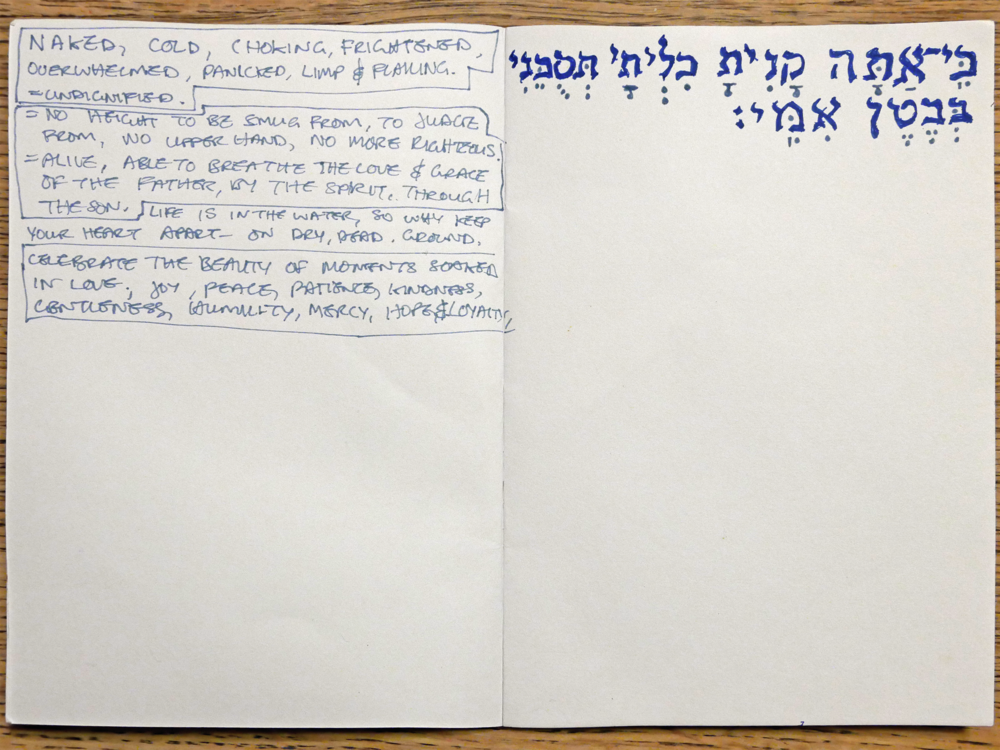 NAKED, COLD, CHOKING, FRIGHTENED,
OVERWHELMED, PANICKED, LIMP & FLAILING.
=UNDIGNIFIED.
=NO HEIGHT TO BE SMUG FROM, TO JUDGE
FROM, NO UPPER HAND, NO MORE RIGHTEOUS.
=ALIVE, ABLE TO BREATHE THE LOVE & GRACE
OF THE FATHER, BY THE SPIRIT, THROUGH
THE SON. LIFE IS IN THE WATER, SO WHY KEEP
YOUR HEART APART— ON DRY, DEAD. GROUND.
CELEBRATE THE BEAUTY OF MOMENTS SOAKED
IN LOVE, JOY, PEACE, PATIENCE, KINDNESS,
GENTLENESS, HUMILITY, MERCY, HOPE & LOYALTY,
כִּי־אַתָּה קָנִיתָ כִלְיֹתָי תְּסֻכֵּנִי
בְּבֶטֶן אִמִּי׃